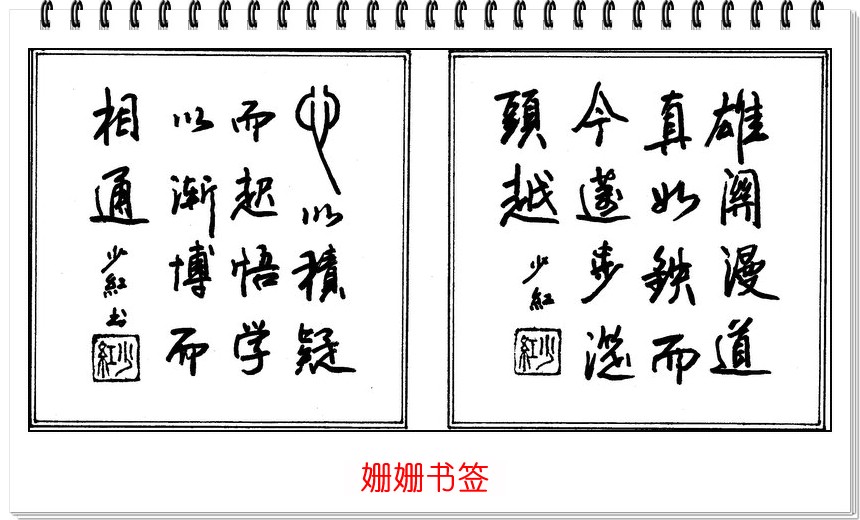 雄關漫道
真如鉄而
今邁步從
頭越
少紅
少紅
心以積疑
而起悟学
以漸博而
相通
少紅书
少紅
姗姗书签